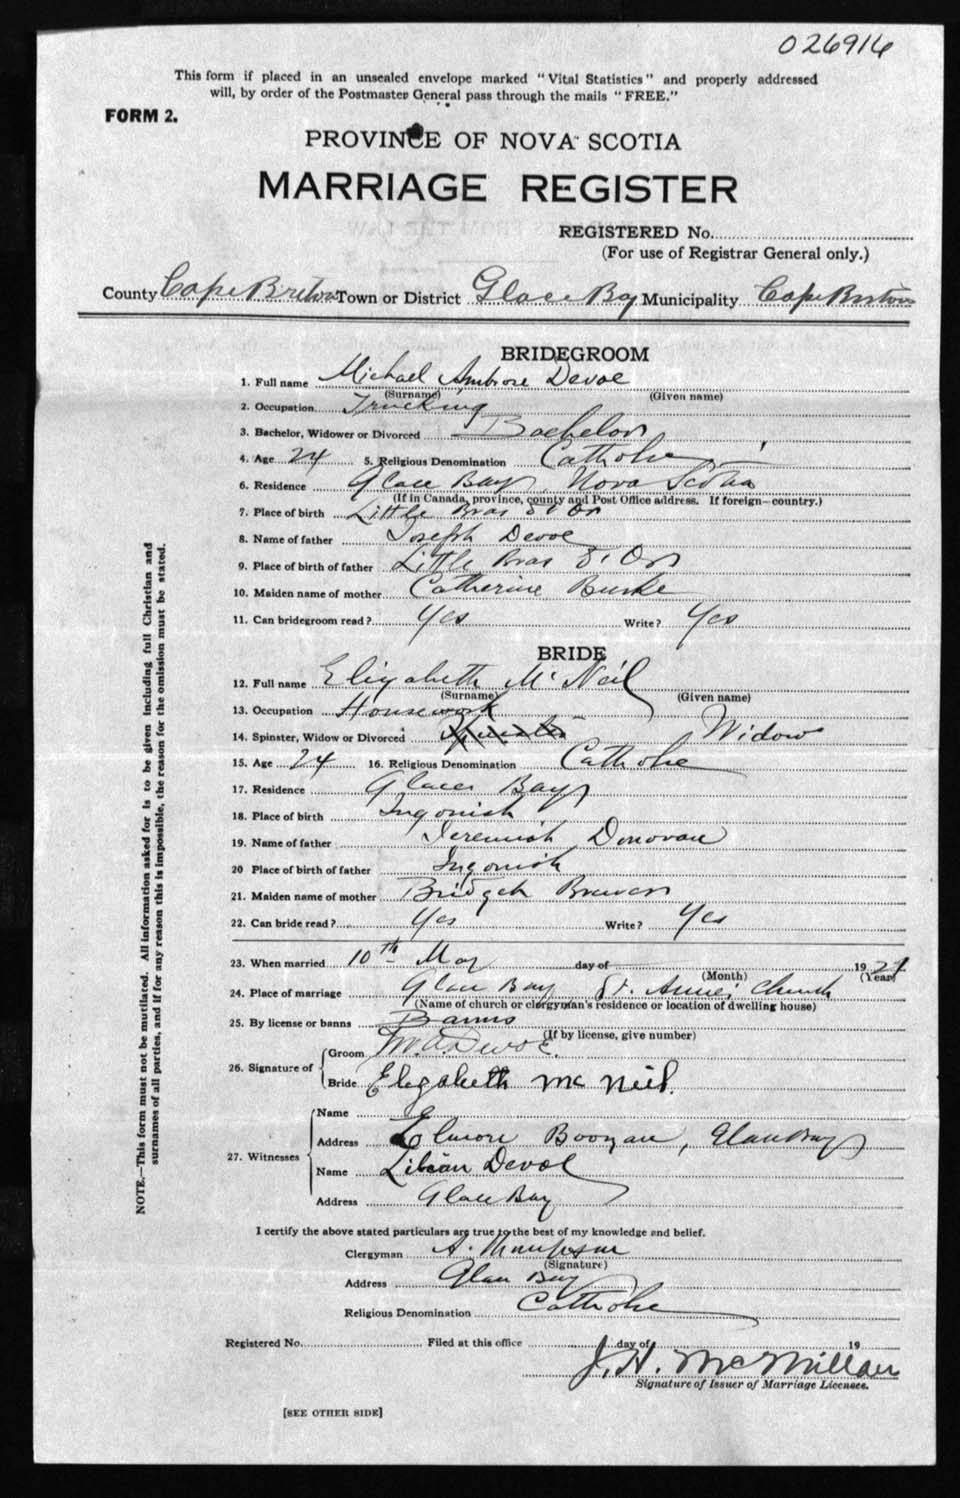 026916
This form if placed in an unsealed envelope marked "Vital Statistics" and properly addressed
will, by order of the Postmaster General pass through the mails "FREE."
FORM 2.
PROVINCE OF NOVA SCOTIA
MARRIAGE REGISTER
REGISTERED No.
(For use of Registrar General only.)
County Cape Breton Town or District Glace Bay Municipality Cape Breton
BRIDEGROOM
1. Full name Michael Ambrose Devoe
(Surname) (Given name)
2. Occupation Trucking
3. Bachelor, Widower or Divorced Bachelor
4. Age 24 5. Religious Denomination Catholic
6. Residence Glace Bay Nova Scotia
(If in Canada, province, county and Post Office address. If foreign—country.)
7. Place of birth Little Bras D'Or
8. Name of father Joseph Devoe
9. Place of birth of father Little Bras D'Or
10. Maiden name of mother Catherine Burke
11. Can bridegroom read? Yes Write? Yes
BRIDE
12. Full name Elizabeth McNeil
(Surname) (Given name)
13. Occupation Housework
14. Spinster, Widow or Divorced Widow
15. Age 24 16. Religious Denomination Catholic
17. Residence Glace Bay
18. Place of birth Ingonish
19. Name of father Jeremiah Donovan
20 Place of birth of father Ingonish
21. Maiden name of mother Bridget
22. Can bride read? Yes Write? Yes
23. When married 10th May day of 19
(Month) (Year)
24. Place of marriage Glace Bay St. Anne's Church
(Name of church or clergyman's residence or location of dwelling house)
25. By license or banns Banns
(If by license, give number)
26. Signature of
Groom M. A. Devoe.
Bride Elizabeth McNeil.
27. Witnesses
Name
Address Elmore, Glace Bay
Name Lilian Devoe
Address Glace Bay
I certify the above stated particulars are true to the best of my knowledge and belief.
Clergyman A. Thompson
(Signature)
Address Glace Bay
Religious Denomination Catholic
Registered No. Filed at this office day of 19
J. H. McMillan
Signature of Issuer of Marriage Licenses.
[SEE OTHER SIDE]
NOTE.—This form must not be mutilated. All information asked for is to be given including full Christian and
surnames of all parties, and if for any reason this is impossible, the reason for the omission must be stated.